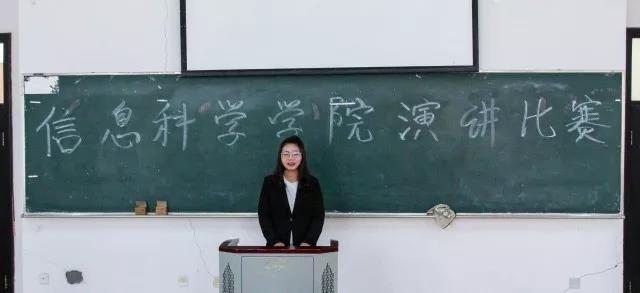 信息科学学院演讲比赛